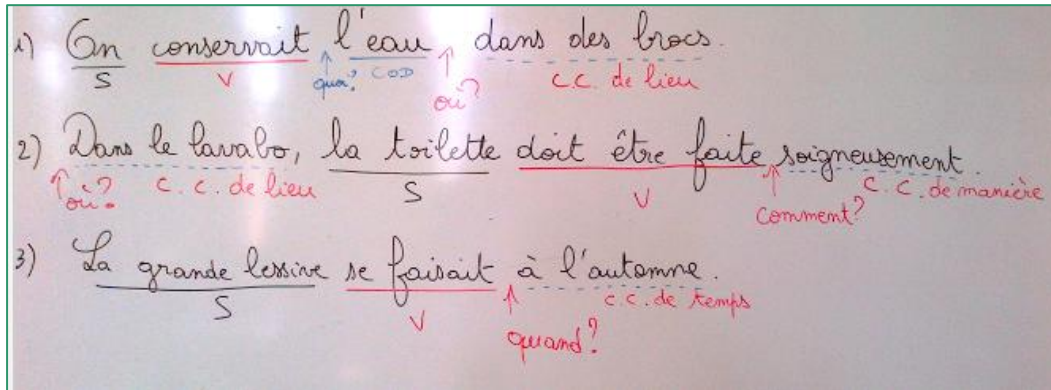 1) On conservait l'eau dans des brocs.
S V quoi? COD où? C.C. de lieu
2) Dans le lavabo, la toilette doit être faite soigneusement.
où? C.C. de lieu S V comment? C.C. de manière
3) La grande lessive se faisait à l'automne.
S V quand? C.C. de temps